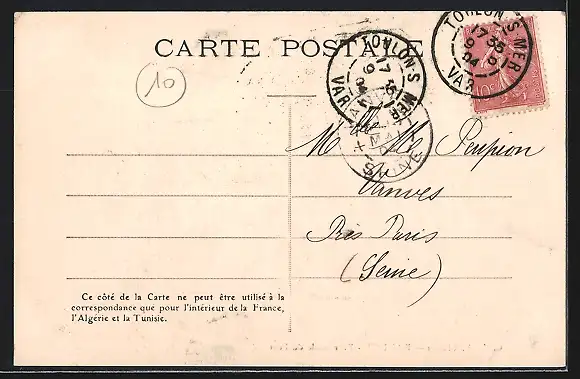 CARTE POSTALE
10
TOULON-S-MER
17 35
9 5
04
VAR
TOULON-S-MER
17 35
9
04
VAR
SEINE
M
Vanves
Près Paris
(Seine)
Ce côté de la Carte ne peut être utilisé à la
correspondance que pour l'intérieur de la France,
l'Algérie et la Tunisie.